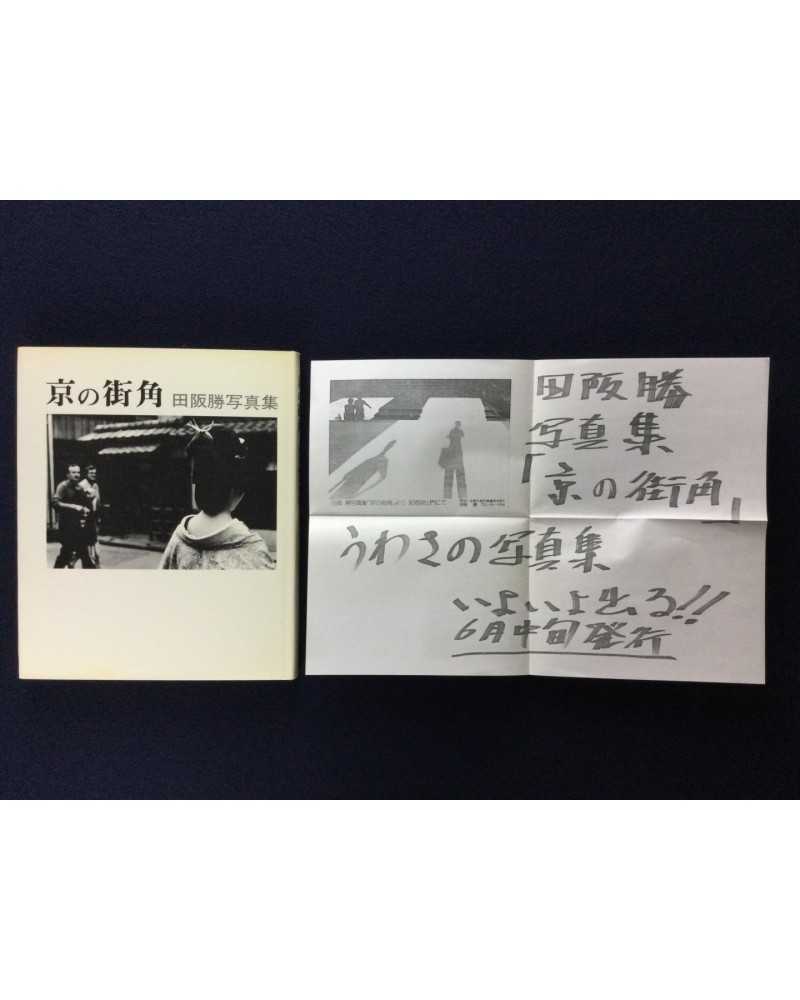 京の街角 田阪勝写真集
田阪勝
写真集
「京の街角」
うわさの写真集
いよいよ出る!!
6月中旬発行